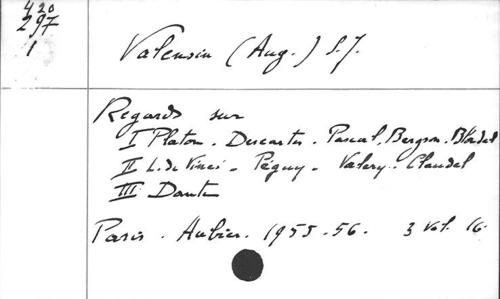 420
297
1
Valensin (Aug.) S.J.
Regards sur
I Platon - Descartes - Pascal, Bergson, Blondel
II L. de Vinci - Péguy - Valery - Claudel
III Dante
Paris . Aubier. 1955-56. 3 Vol. 16.